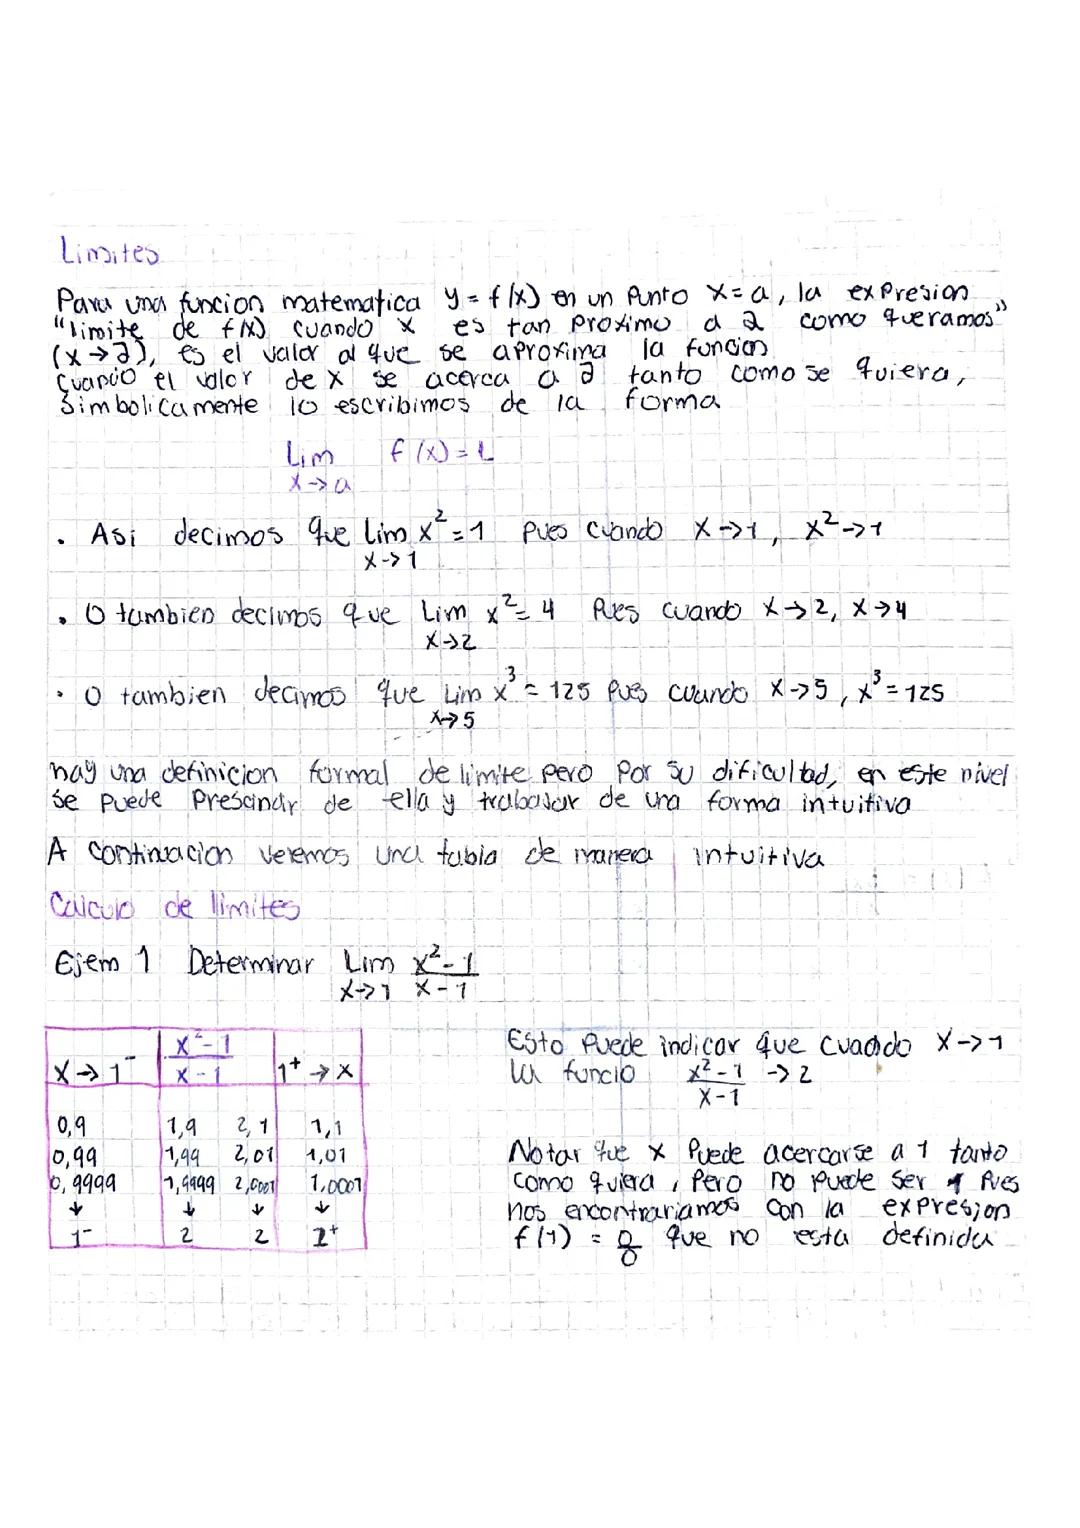 Limites
Para una funcion matematica y = f(x) en un punto x = a, la expresion
"limite de f(x) cuando x es tan proximo a a como queramos"
(x → a), es el valor al que se aproxima la funcion
cuando el valor de x se acerca a a tanto como se quiera,
Simbolicamente lo escribimos de la forma
Lim f(x) = L
x → a
· Asi decimos que Lim x² = 1 pues cuando x → 1, x² → 1
x → 1
· O tambien decimos que Lim x² = 4 Pues cuando x → 2, x → 4
x → 2
· O tambien decimos que Lim x³ = 125 pues cuando x → 5, x³ = 125
x → 5
hay una definicion formal de limite pero por su dificultad, en este nivel
se puede Prescindir de ella y trabajar de una forma intuitiva
A continuacion veremos una tabla de manera intuitiva
Calculo de limites
Ejem 1 Determinar Lim x² - 1
x → 1 x - 1
x → 1⁻ x² - 1 / x - 1 1⁺ → x
0,9 1,9 2,1 1,1
0,99 1,99 2,01 1,01
0,9999 1,9999 2,0001 1,0001
↓ ↓ ↓ ↓
1⁻ 2 2 1⁺
Esto Puede indicar que cuando x → 1
la funcio x² - 1 → 2
x - 1
Notar que x Puede acercarse a 1 tanto
como quiera, Pero no puede ser 1 Pues
nos encontrariamos con la expresion
f(1) = 0/0 que no esta definida